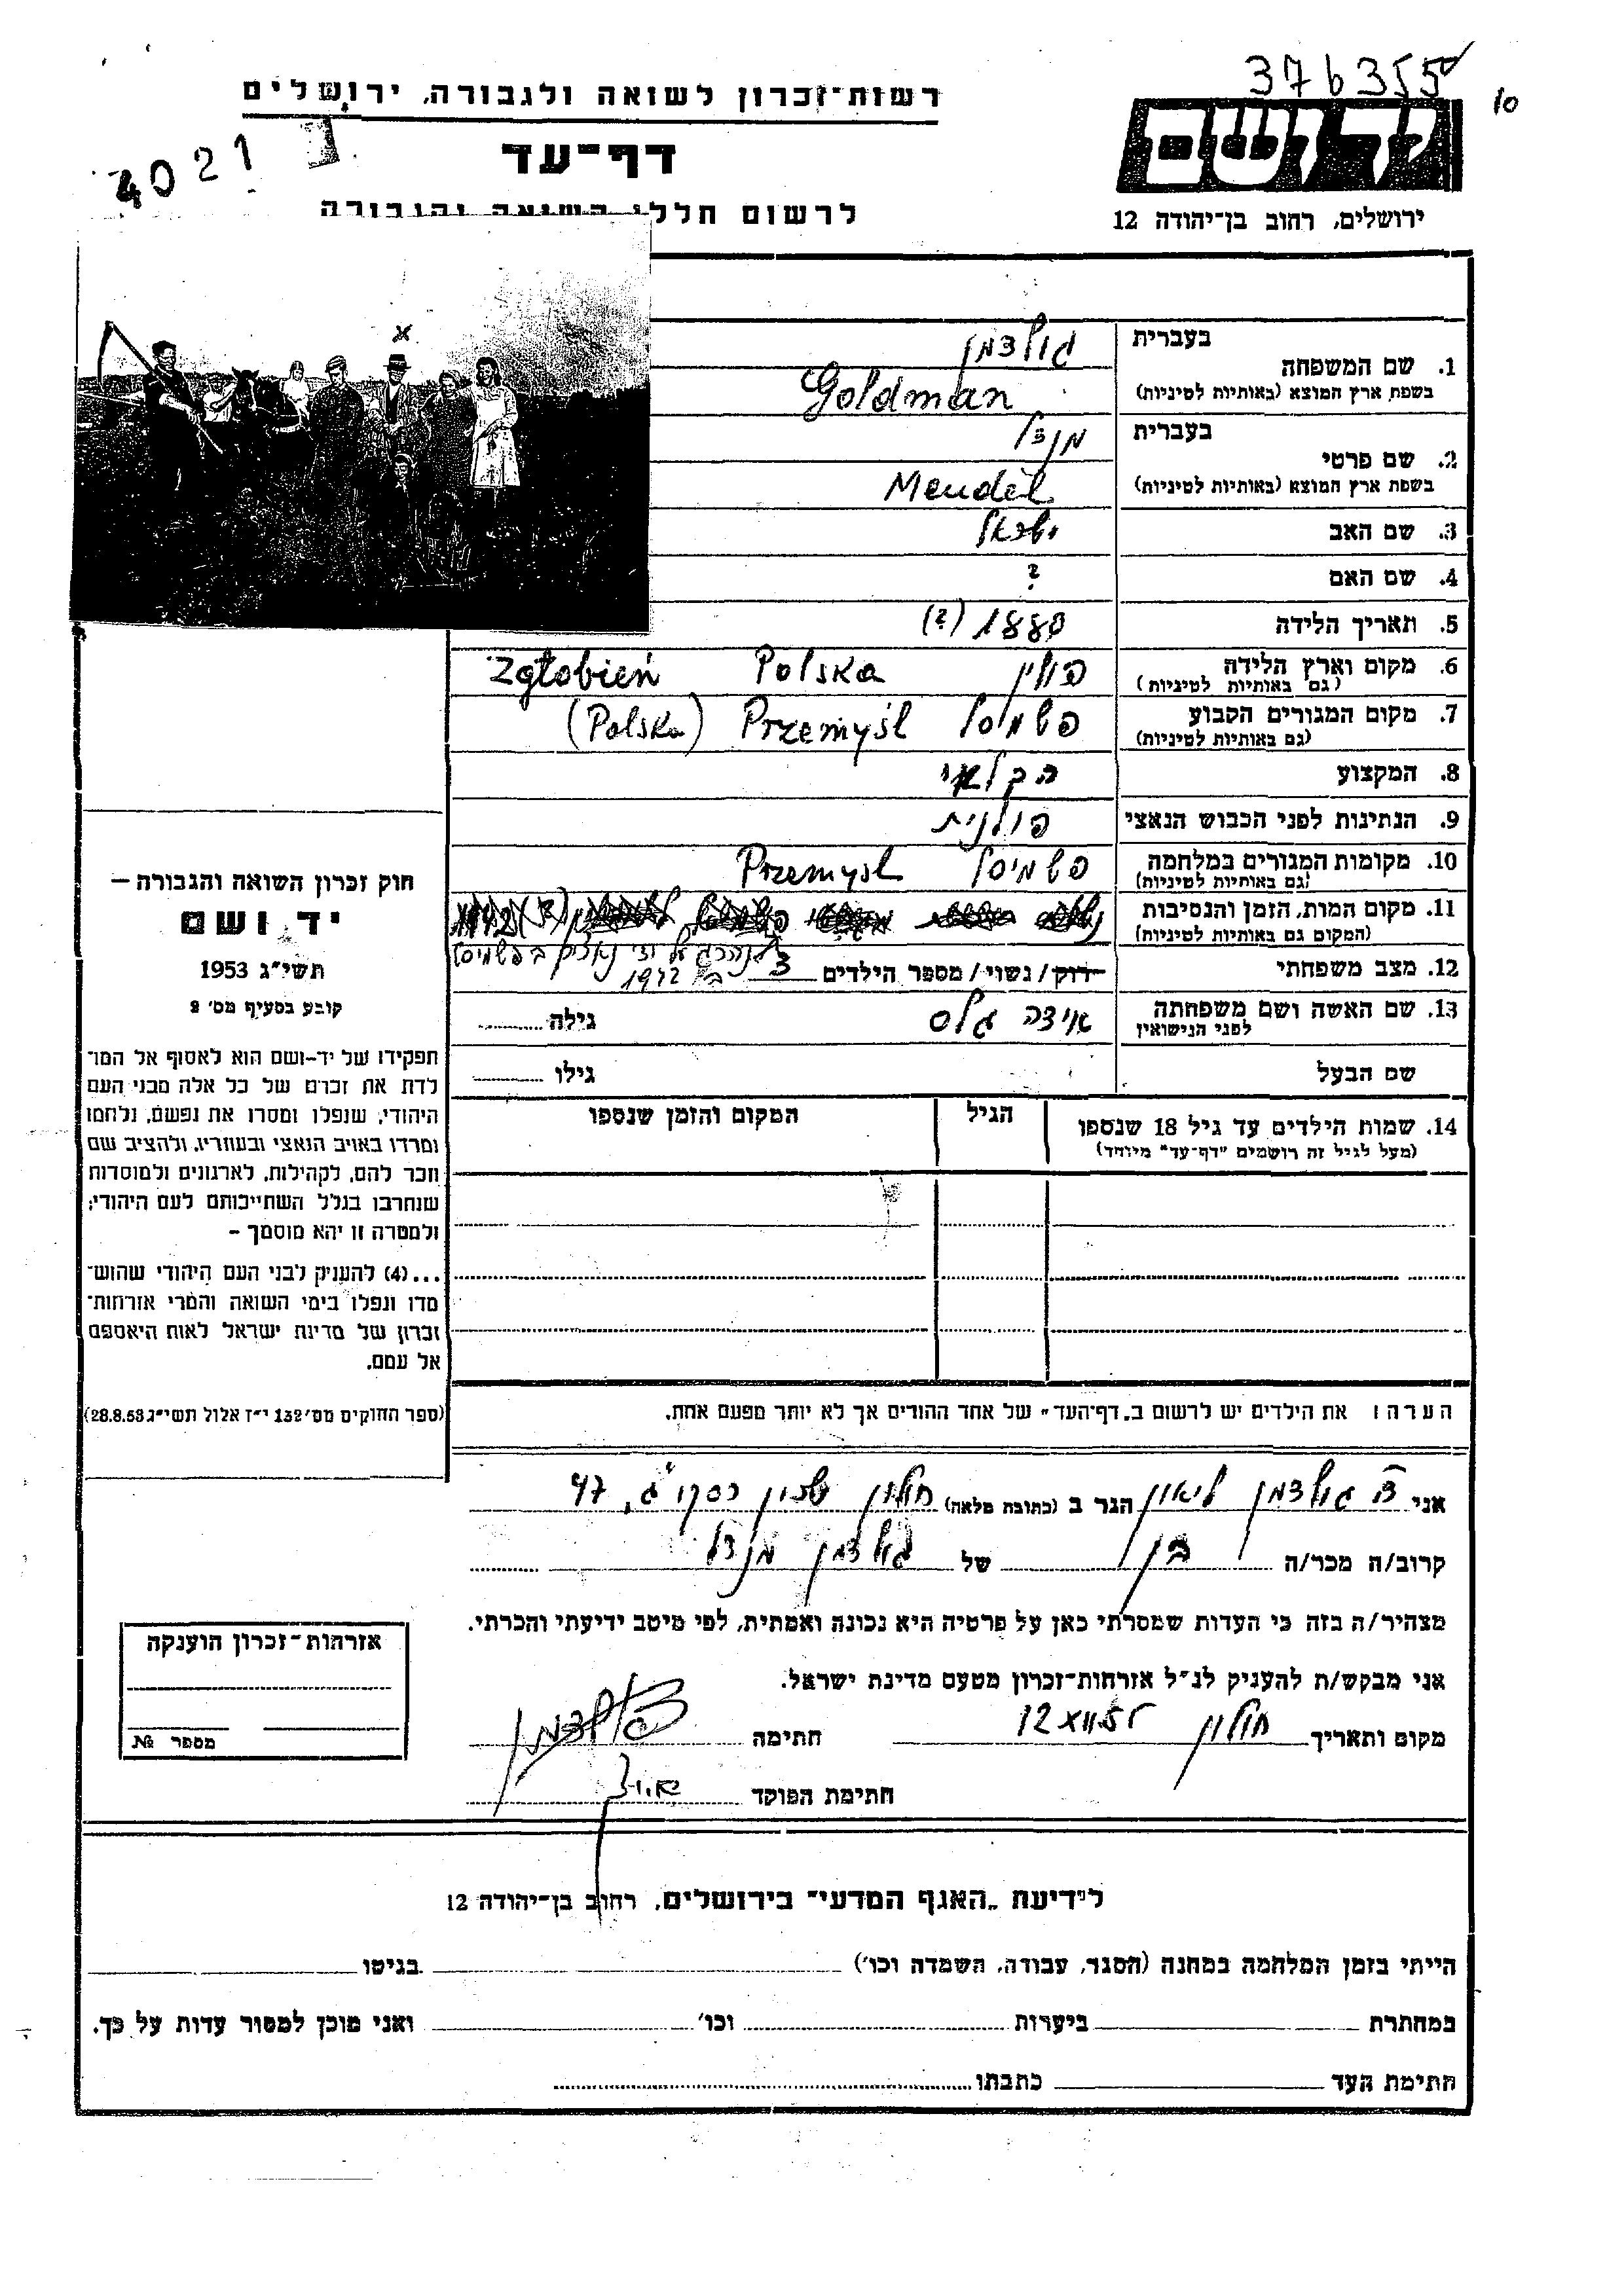 376355
10
רשות-זכרון לשואה ולגבורה, ירושלים
יד ושם
4021
דף-עד
ירושלים, רחוב בן-יהודה 12
לרשום חללי השואה והגבורה
בעברית
1. שם המשפחה
גולדמן
בשפת ארץ המוצא (באותיות לטיניות)
Goldman
בעברית
2. שם פרטי
מנדל
בשפת ארץ המוצא (באותיות לטיניות)
Mendel
3. שם האב ישראל
4. שם האם ?
5. תאריך הלידה 1880 (?)
6. מקום וארץ הלידה פולין Polska Zgłobień
(גם באותיות לטיניות)
7. מקום המגורים הקבוע פשמיסל Przemyśl (Polska)
(גם באותיות לטיניות)
8. המקצוע חקלאי
9. הנתינות לפני הכבוש הנאצי פולנית
10. מקומות המגורים במלחמה פשמיסל Przemysl
(גם באותיות לטיניות)
11. מקום המות, הזמן והנסיבות
(המקום גם באותיות לטיניות)
נהרג על ידי נאצים בפשמיסל
ב 1942
12. מצב משפחתי רוק/ נשוי/ מספר הילדים 3
13. שם האשה ושם משפחתה אידה גלס גילה
לפני הנישואין
שם הבעל גילו
14. שמות הילדים עד גיל 18 שנספו הגיל המקום והזמן שנספו
(מעל לגיל זה רושמים "דף-עד" מיוחד)
הערה: את הילדים יש לרשום ב„דף-העד" של אחד ההורים אך לא יותר מפעם אחת.
חוק זכרון השואה והגבורה –
יד ושם
תשי"ג 1953
קובע בסעיף מס' 2
תפקידו של יד-ושם הוא לאסוף אל המו־
לדת את זכרם של כל אלה מבני העם
היהודי, שנפלו ומסרו את נפשם, נלחמו
ומרדו באויב הנאצי ובעוזריו, ולהציב שם
וזכר להם, לקהילות, לארגונים ולמוסדות
שנחרבו בגלל השתייכותם לעם היהודי;
ולמטרה זו יהא מוסמך –
...(4) להעניק לבני העם היהודי שהוש־
מדו ונפלו בימי השואה והמרי אזרחות־
זכרון של מדינת ישראל לאות היאספם
אל עמם.
(ספר החוקים מס' 132 י"ז אלול תשי"ג 28.8.53)
אני גולדמן ליאון הגר ב (כתובת מלאה) חולון שכון רסקו ג', 47
קרוב/ה מכר/ה בן של גולדמן מנדל
מצהיר/ה בזה כי העדות שמסרתי כאן על פרטיה היא נכונה ואמתית, לפי מיטב ידיעתי והכרתי.
אני מבקש/ת להעניק לנ"ל אזרחות-זכרון מטעם מדינת ישראל.
מקום ותאריך חולון 12 XII.55 חתימה גולדמן
חתימת הפוקד
אזרחות-זכרון הוענקה
מספר №
לידיעת „האגף המדעי" בירושלים, רחוב בן-יהודה 12
הייתי בזמן המלחמה במחנה (הסגר, עבודה, השמדה וכו') בגיטו
במחתרת ביערות וכו' ואני מוכן למסור עדות על כך.
חתימת העד כתבתו